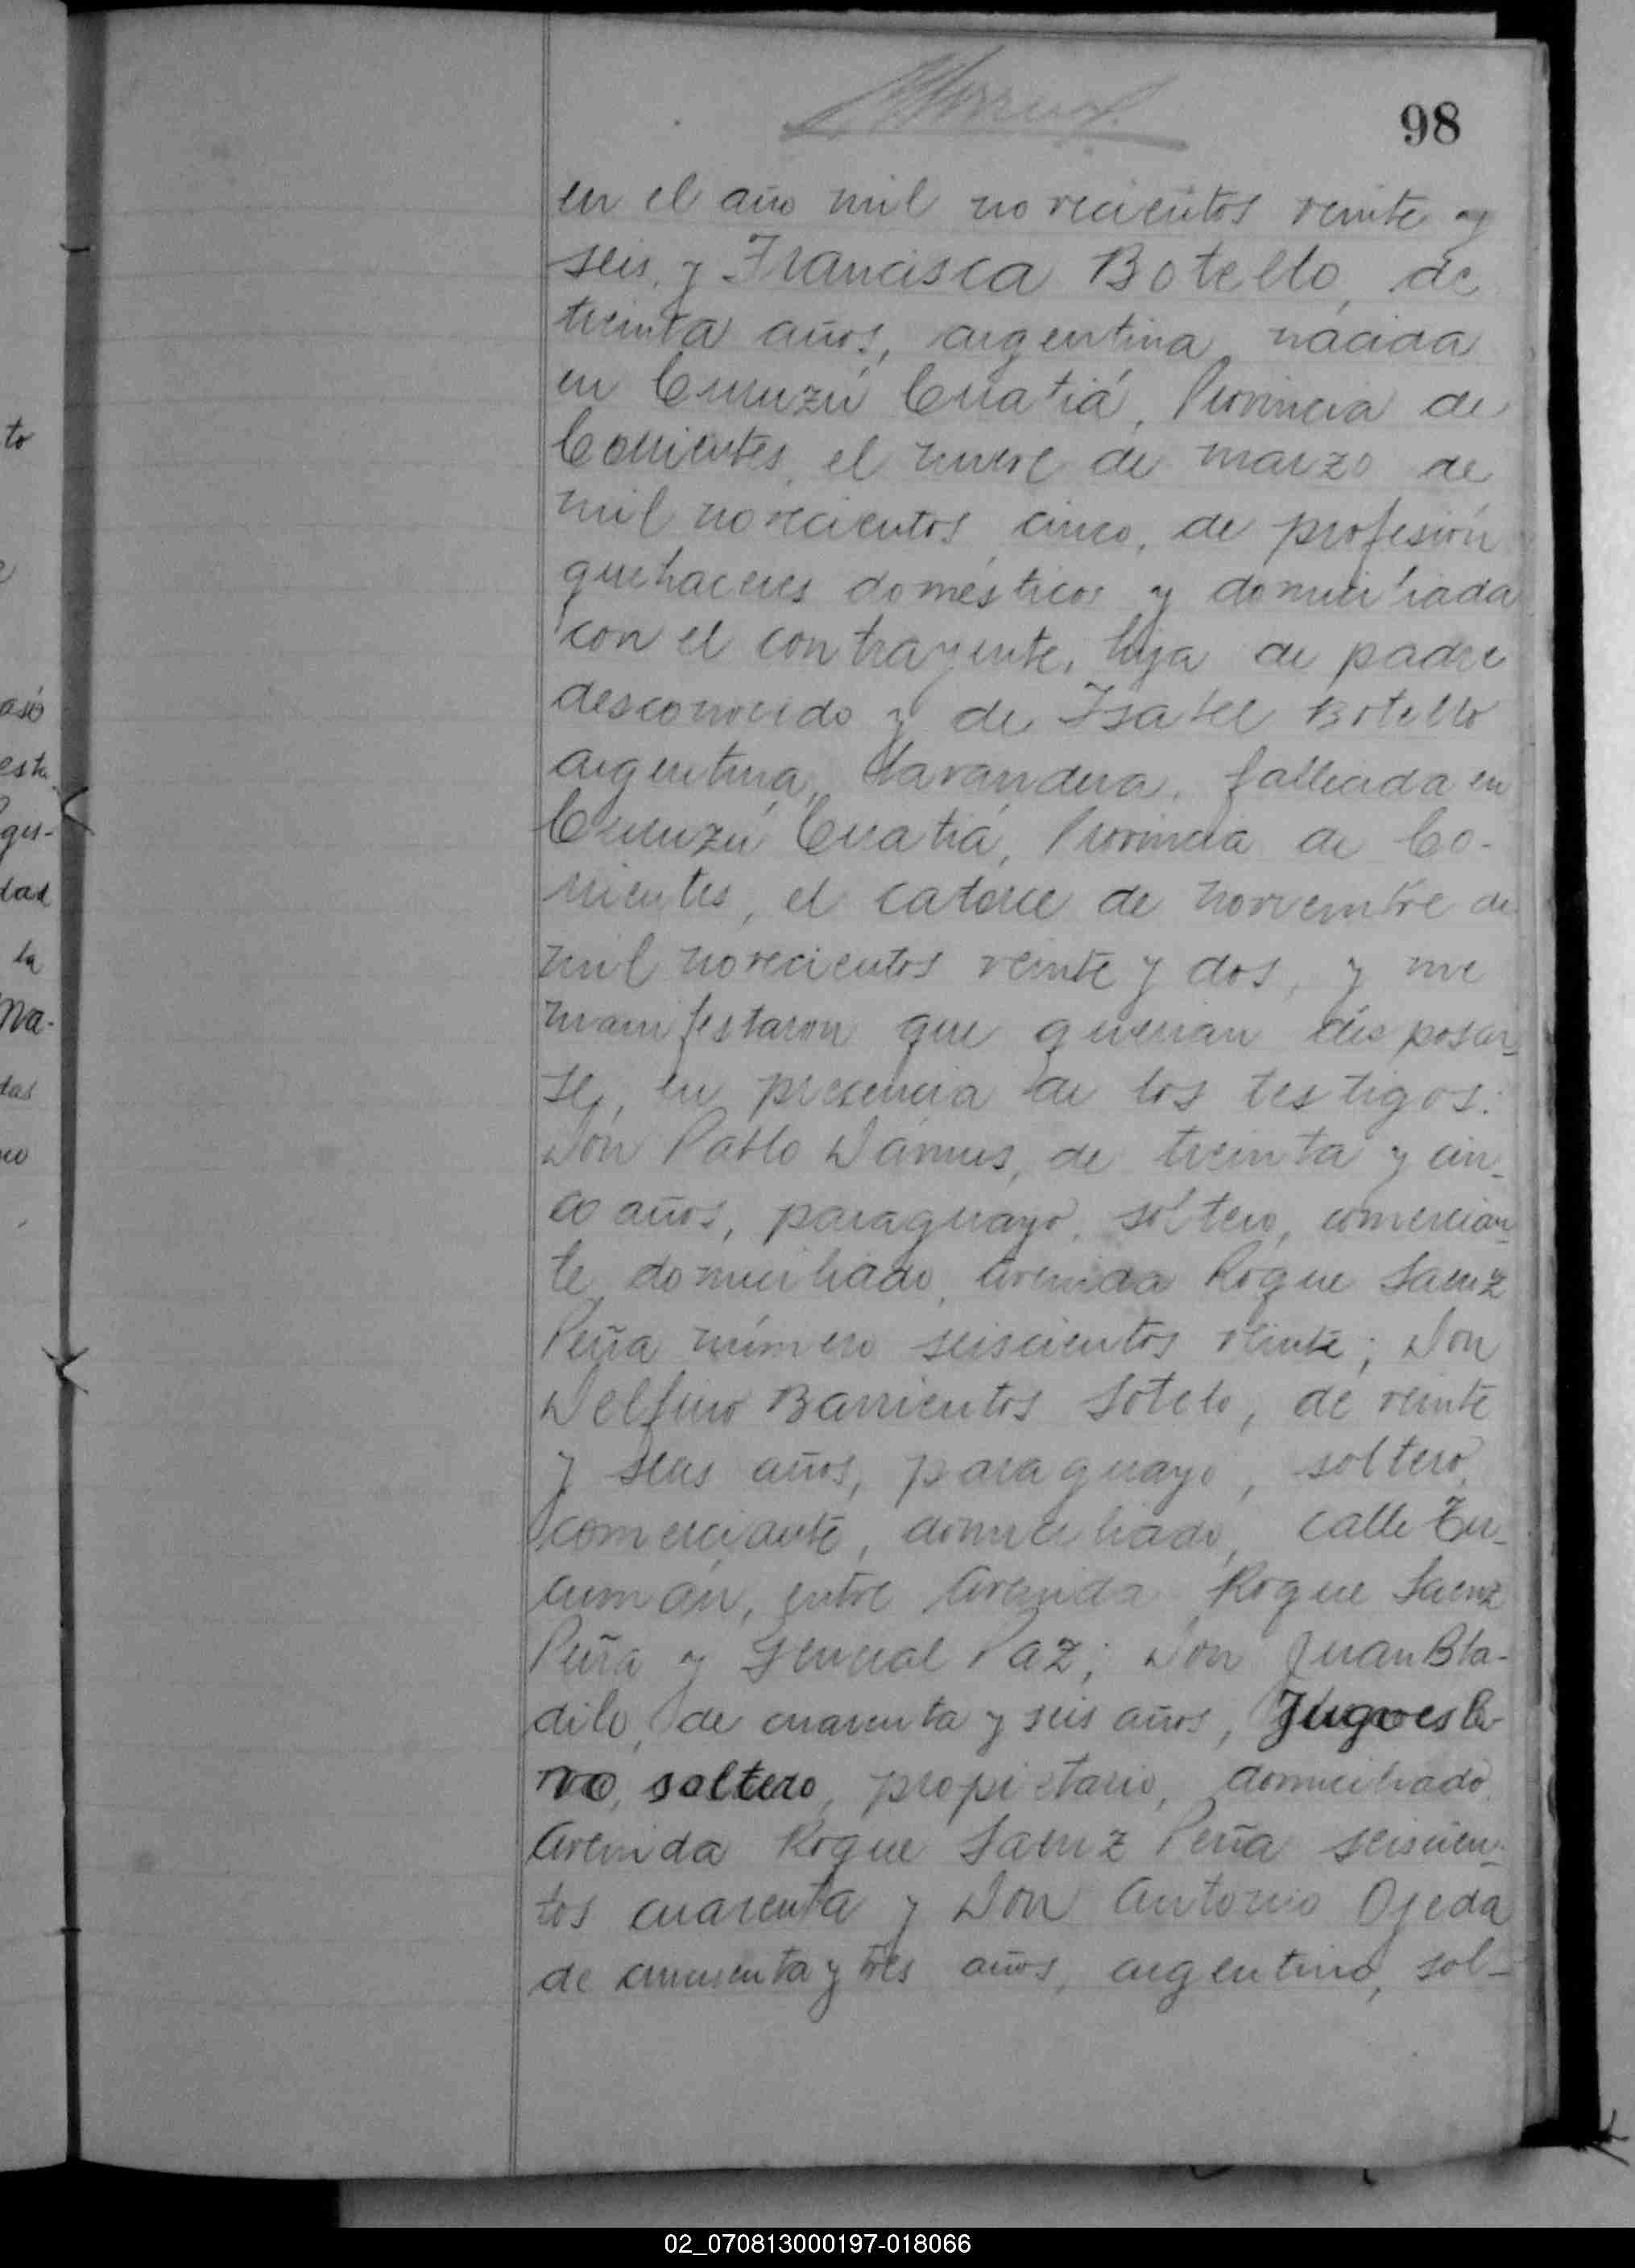 98
en el año mil novecientos veinte y
seis, y Francisca Botello, de
treinta años, argentina, nacida
en Curuzú Cuatiá, Provincia de
Corrientes, el nueve de marzo de
mil novecientos cinco, de profesión
quehaceres domésticos y domiciliada
con el contrayente, hija de padre
desconocido y de Isabel Botello
argentina, lavandera, fallecida en
Curuzú Cuatiá, Provincia de Co-
rrientes, el catorce de noviembre de
mil novecientos veinte y dos, y me
manifestaron que querian desposar-
se, en presencia de los testigos:
Don Pablo Dámus, de treinta y cin-
co años, paraguayo, soltero, comercian-
te domiciliado, Avenida Roque Saenz
Peña número seiscientos veinte; Don
Delfino Barrientos Sotelo, de veinte
y seis años, paraguayo, soltero,
comerciante, domiciliado, calle Tu-
cumán, entre Avenida Roque Saenz
Peña y General Paz; Don Juan Bla-
dilo, de cuarenta y seis años, Jugoesla-
vo, soltero, propietario, domiciliado,
Avenida Roque Saenz Peña seiscien-
tos cuarenta y Don Antonio Ojeda
de cincuenta y tres años, argentino, sol-
to
asó
esta
ges-
dad
la
Ma-
das
02_070813000197-018066